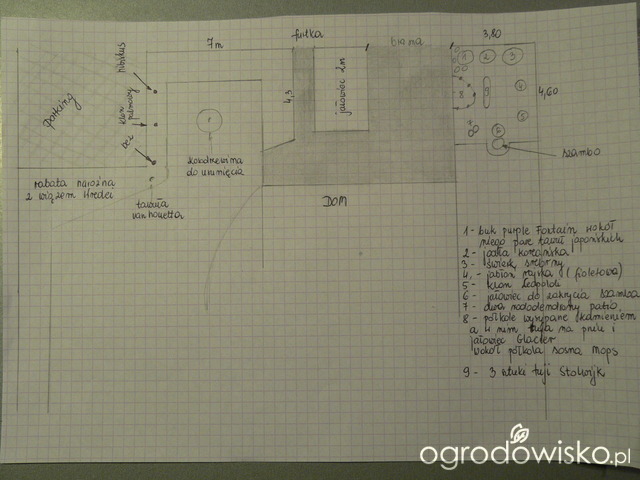 7m
furtka
brama
3,80
parking
hibiskus
klon palmowy
bez
4,3
jałowiec 2m
1
2
3
8
9
4
5
6
4,60
szambo
kosodrzewina
do usunięcia
rabata narożna
z wiązem Hredei
tawuła
van houetta
DOM
1 - buk purple Fontain wokół
niego parę tawuł japońskich
2 - jodła koreańska
3 - świerk srebrny
4 - jabłoń rajska (fioletowa)
5 - klon Leopoldi
6 - jałowiec do zakrycia szamba
7 - dwa rododendrony patio
8 - półkole wysypane kamieniem
a w nim tuja na pniu i
jałowiec Glacier
wokół półkola sosna mops
9 - 3 sztuki tuji Stolwijk
ogrodowisko.pl